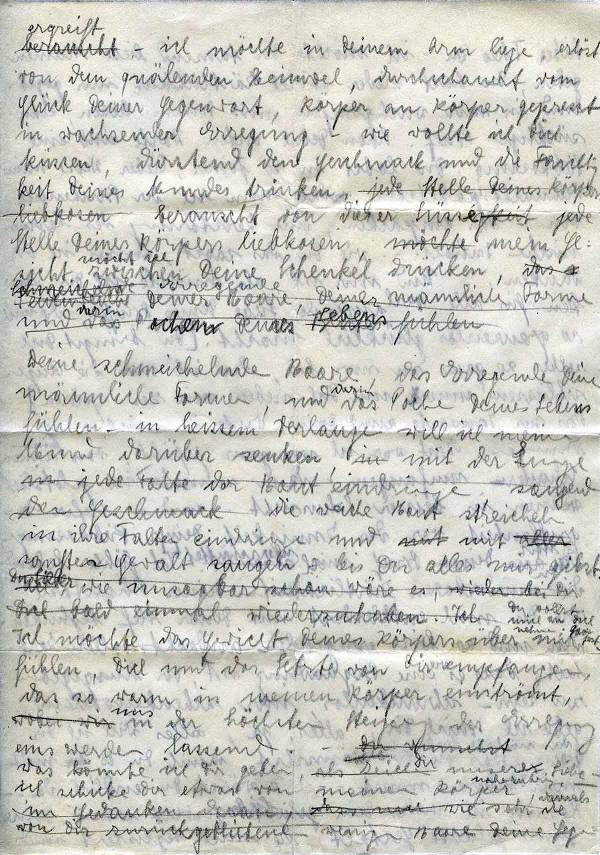 ergreift
berauscht – ich möchte in deinem Arm liegen, erlöst
von dem quälenden, durchschauert vom
Glück deiner Gegenwart, Körper an Körper gepresst
in wachsender Erregung – wie wollte ich dich
küssen, dürstend den Geschmack und die Feuchtig
keit deines Mundes trinken, jede Stelle deines Körpers
liebkosen berauscht von dieser Süssigkeit jede
Stelle deines Körpers liebkosen, möchte mein Ge-
möchte ich
sicht zwischen deine Schenkel drücken, das
erregende
deiner Haare, deine männliche Form
darin
und das Pochen deines Lebens fühlen
Deine schmeichelnde Haare, das Erregende deine
darin
männliche Formen, und das Poche deines Lebens
fühlen – in heissem Verlange will ich meine
Mund darüber senken in mit der Zunge
in jede Falte der Haut eindringe saugend
den Geschmack die weiche Haut streicheln
in ihre Falte eindringe und mit mit aller
sanfter Gewalt saugen bis du alles mir gibst
wie unsagbar schön wäre es, wieder bei dir
Dich bald einmal wiederzuhaben. Ich
du sollst
mich an dich
Ich möchte das Gewicht deines Körpers über mir
fühlen, dich und das Letzte von dir empfangen,
das so warm in meinen Körper einströmt,
uns
in der höchsten Steigerung des Erregung
eins werden lassend. –
dir
Was könnte ich dir geben, als unserer Liebe –
ich schicke dir etwas von meinem Körper
damals
im Gedanken daran, dass wie sehr ich
von dir zurückgebliebene wenige Haare deine Gege-